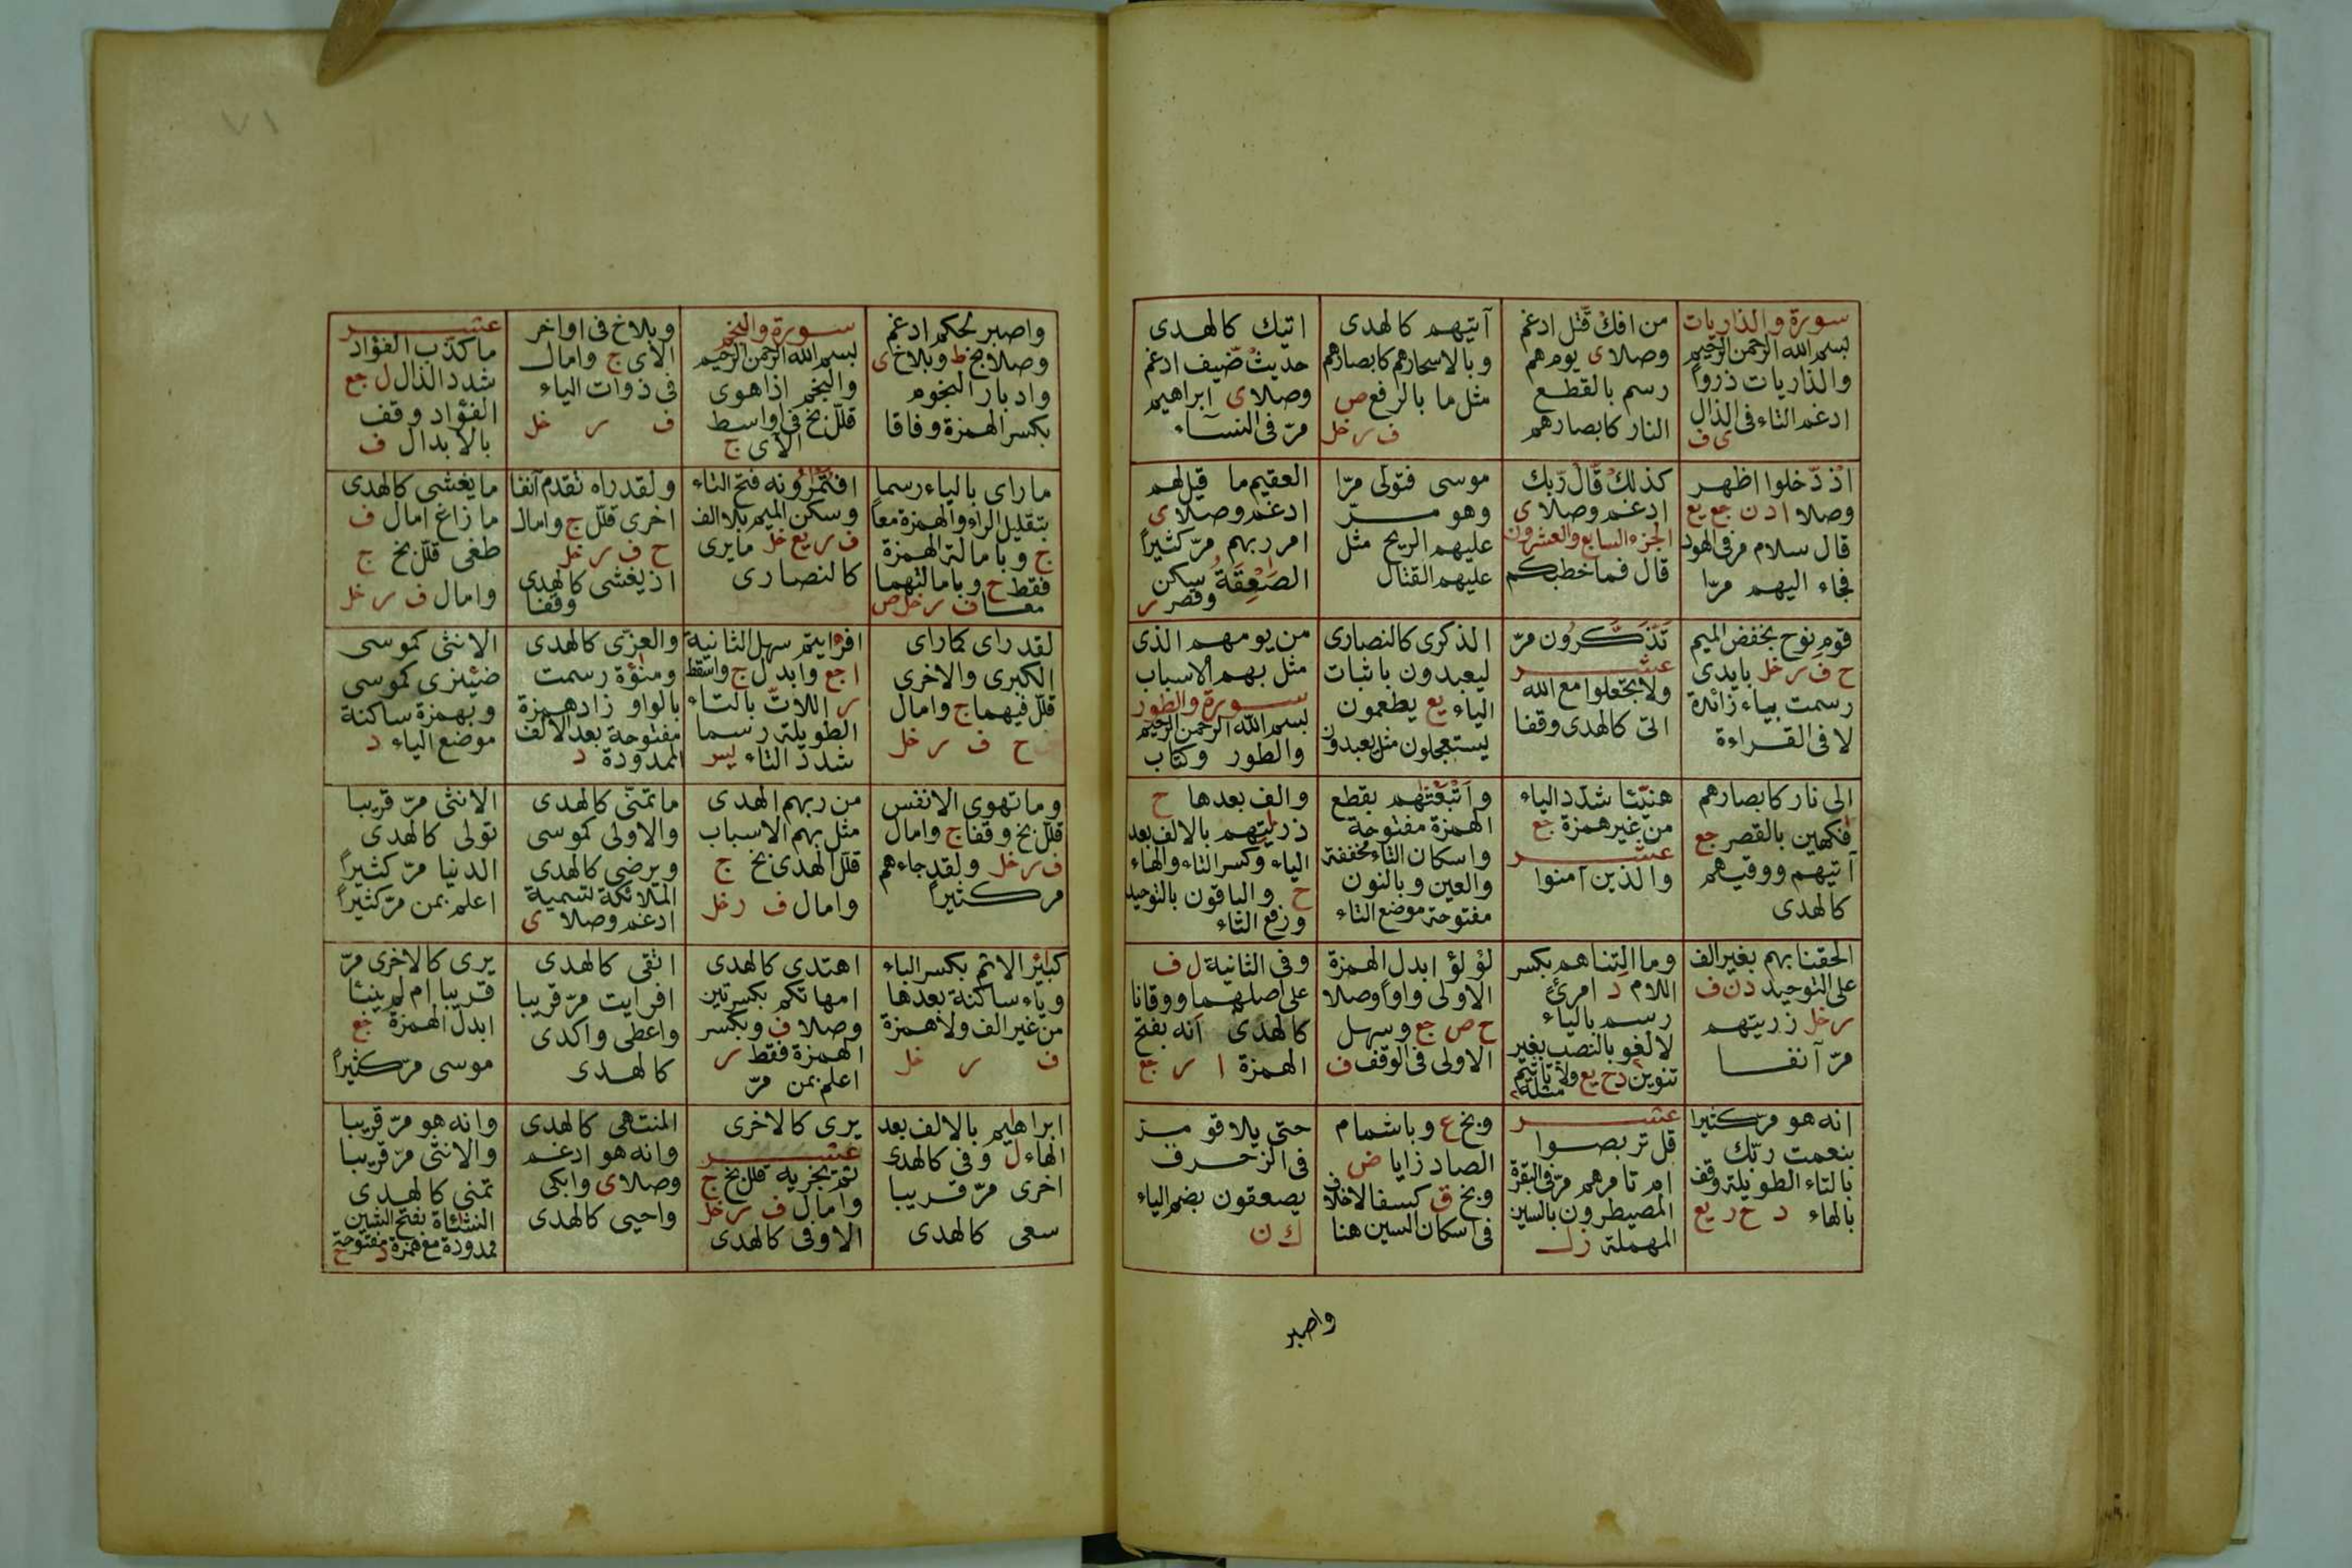 سورة والذاريات
بسم الله الرحمن الرحيم
والذاريات ذروا
ادغم التاء فى الذال
ى ف
من افك قتل ادغم
وصلا ى يوم هم
رسم بالقطع
النار كابصارهم
آتيهم كالهدى
وبالاسحارهم كابصارهم
مثل ما بالرفع ص
ف ر خل
اتيك كالهدى
حديث ضيف ادغم
وصلا ى ابراهيم
مرّ فى النسآء
اذ دّخلوا اظهر
وصلا ا د ن جع يع
قال سلام مر فى الهود
فجاء اليهم مرّا
كذلك قال ربك
ادغم وصلا ى
الجزء السابع والعشرون
قال فما خطبكم
موسى فتولى مرّا
وهو مرّ
عليهم الريح مثل
عليهم القتال
العقيم ما قيل لهم
ادغم وصلا ى
امر ربهم مرّ كثيراً
الصَعْقَةُ سكن
وقصر ر
قوم نوح بخفض الميم
ح ف ر خل بايدى
رسمت بياء زائدة
لا فى القراءة
تَذَّكَّرُون مرّ
عشر
ولا تجعلوا مع الله
اتى كالهدى وقفا
الذكرى كالنصارى
ليعبدون باثبات
الياء يع يطعمون
يستعجلون مثل يعبدون
من يومهم الذى
مثل بهم الاسباب
سورة والطور
بسم الله الرحمن الرحيم
والطور وكتاب
الى نار كابصارهم
فكهين بالقصر جع
آتيهم ووقيهم
كالهدى
هنيّئا شدّد الياء
من غير همزة جع
عشر
والذين آمنوا
وأتبعتهم بقطع
الهمزة مفتوحة
واسكان التاء مخففة
والعين وبالنون
مفتوحة موضع التاء
والف بعدها ح
ذريتهم بالالف بعد
الياء وكسر التاء والهاء
ح والباقون بالتوحيد
ورفع التاء
الحقنا بهم بغير الف
على التوحيد د ن ف
ر خل زريتهم
مرّ آنفا
وما التناهم بكسر
اللام د امرئ
رسم بالياء
لا لغو بالنصب بغير
تنوين د ح يع ولا تأثيم
مثله
لؤلؤ ابدل الهمزة
الاولى واواً وصلا
ح ص جع وسهل
الاولى فى الوقف ف
وفى الثانية ل ف
على اصلهما ووقانا
كالهدى انه بفتح
الهمزة ا ر جع
انه هو مرّ كثيرا
بنعمت ربّك
بالتاء الطويلة وقف
بالهاء د ح ر يع
عشر
قل تربصوا
ام تامرهم مرّ فى البقرة
المصيطرون بالسين
المهملة ز ل
وبخ ع وباشمام
الصاد زايا ض
وبخ ق كسفا لاخلاف
فى اسكان السين هنا
حتى يلاقو مرّ
فى الزخرف
يصعقون بضم الياء
ك ن
واصبر
٧١
واصبر لحكم ادغم
وصلا بخ ط وبلاخ ى
وادبار النجوم
بكسر الهمزة وفاقا
سورة والنجم
بسم الله الرحمن الرحيم
والنجم اذا هوى
قلّل بخ فى اواسط
الآى ج
وبلاخ فى اواخر
الآى ج وامال
فى ذوات الياء
ف ر خل
عشر
ما كذب الفؤاد
شدد الذال ل جع
الفؤاد وقف
بالابدال ف
ما راى بالياء رسما
بتقليل الراء والهمزة معاً
ج وبامالة الهمزة
فقط ح وبامالتهما
معا ف ر خل ص
افتمرونه فتح التاء
وسكن الميم بلا الف
ف ر يع خل ما يرى
كالنصارى
ولقد راه تقدم آنفا
اخرى قلّل ج وامال
ح ف ر خل
اذ يغشى كالهدى
وقفا
ما يغشى كالهدى
ما زاغ امال ف
طغى قلّل بخ ج
وامال ف ر خل
لقد راى كما راى
الكبرى والاخرى
قلّل فيهما ج وامال
ح ف ر خل
افرايتم سهل الثانية
ا جع وابدل ج واسقط
ر اللاتّ بالتاء
الطويلة رسما
شدد التاء يس
والعزّى كالهدى
ومنؤة رسمت
بالواو زاد همزة
مفتوحة بعد الالف
الممدودة د
الانثى كموسى
ضيزى كموسى
وبهمزة ساكنة
موضع الياء د
وما تهوى الانفس
قلّل بخ وقفا ج وامال
ف ر خل ولقد جاءهم
مر كثيراً
من ربهم الهدى
مثل بهم الاسباب
قلّل الهدى بخ ج
وامال ف ر خل
ما تمنّى كالهدى
والاولى كموسى
ويرضى كالهدى
الملائكة لتسمية
ادغم وصلا ى
الانثى مرّ قريبا
تولى كالهدى
الدنيا مرّ كثيراً
اعلم بمن مرّ كثيراً
كبائر الاثم بكسر الباء
وياء ساكنة بعدها
من غير الف ولا همزة
ف ر خل
اهتدى كالهدى
امهاتكم بكسرتين
وصلا ف وبكسر
الهمزة فقط ر
اعلم بمن مرّ
اتقى كالهدى
افرايت مرّ قريبا
واعطى واكدى
كالهدى
يرى كالاخرى مرّ
قريبا ام لم ينبئا
ابدل الهمزة جع
موسى مرّ كثيراً
ابراهيم بالالف بعد
الهاء ل وفى كالهدى
اخرى مرّ قريبا
سعى كالهدى
يرى كالاخرى
عشر
ثم تجزيه قلل بخ ج
وامال ف ر خل
الاوفى كالهدى
المنتهى كالهدى
وانه هو ادغم
وصلا ى وابكى
واحيى كالهدى
وانه هو مرّ قريبا
والانثى مرّ قريبا
تمنى كالهدى
النشئاة بفتح الشين
ممدودة مع همزة مفتوحة
د ح